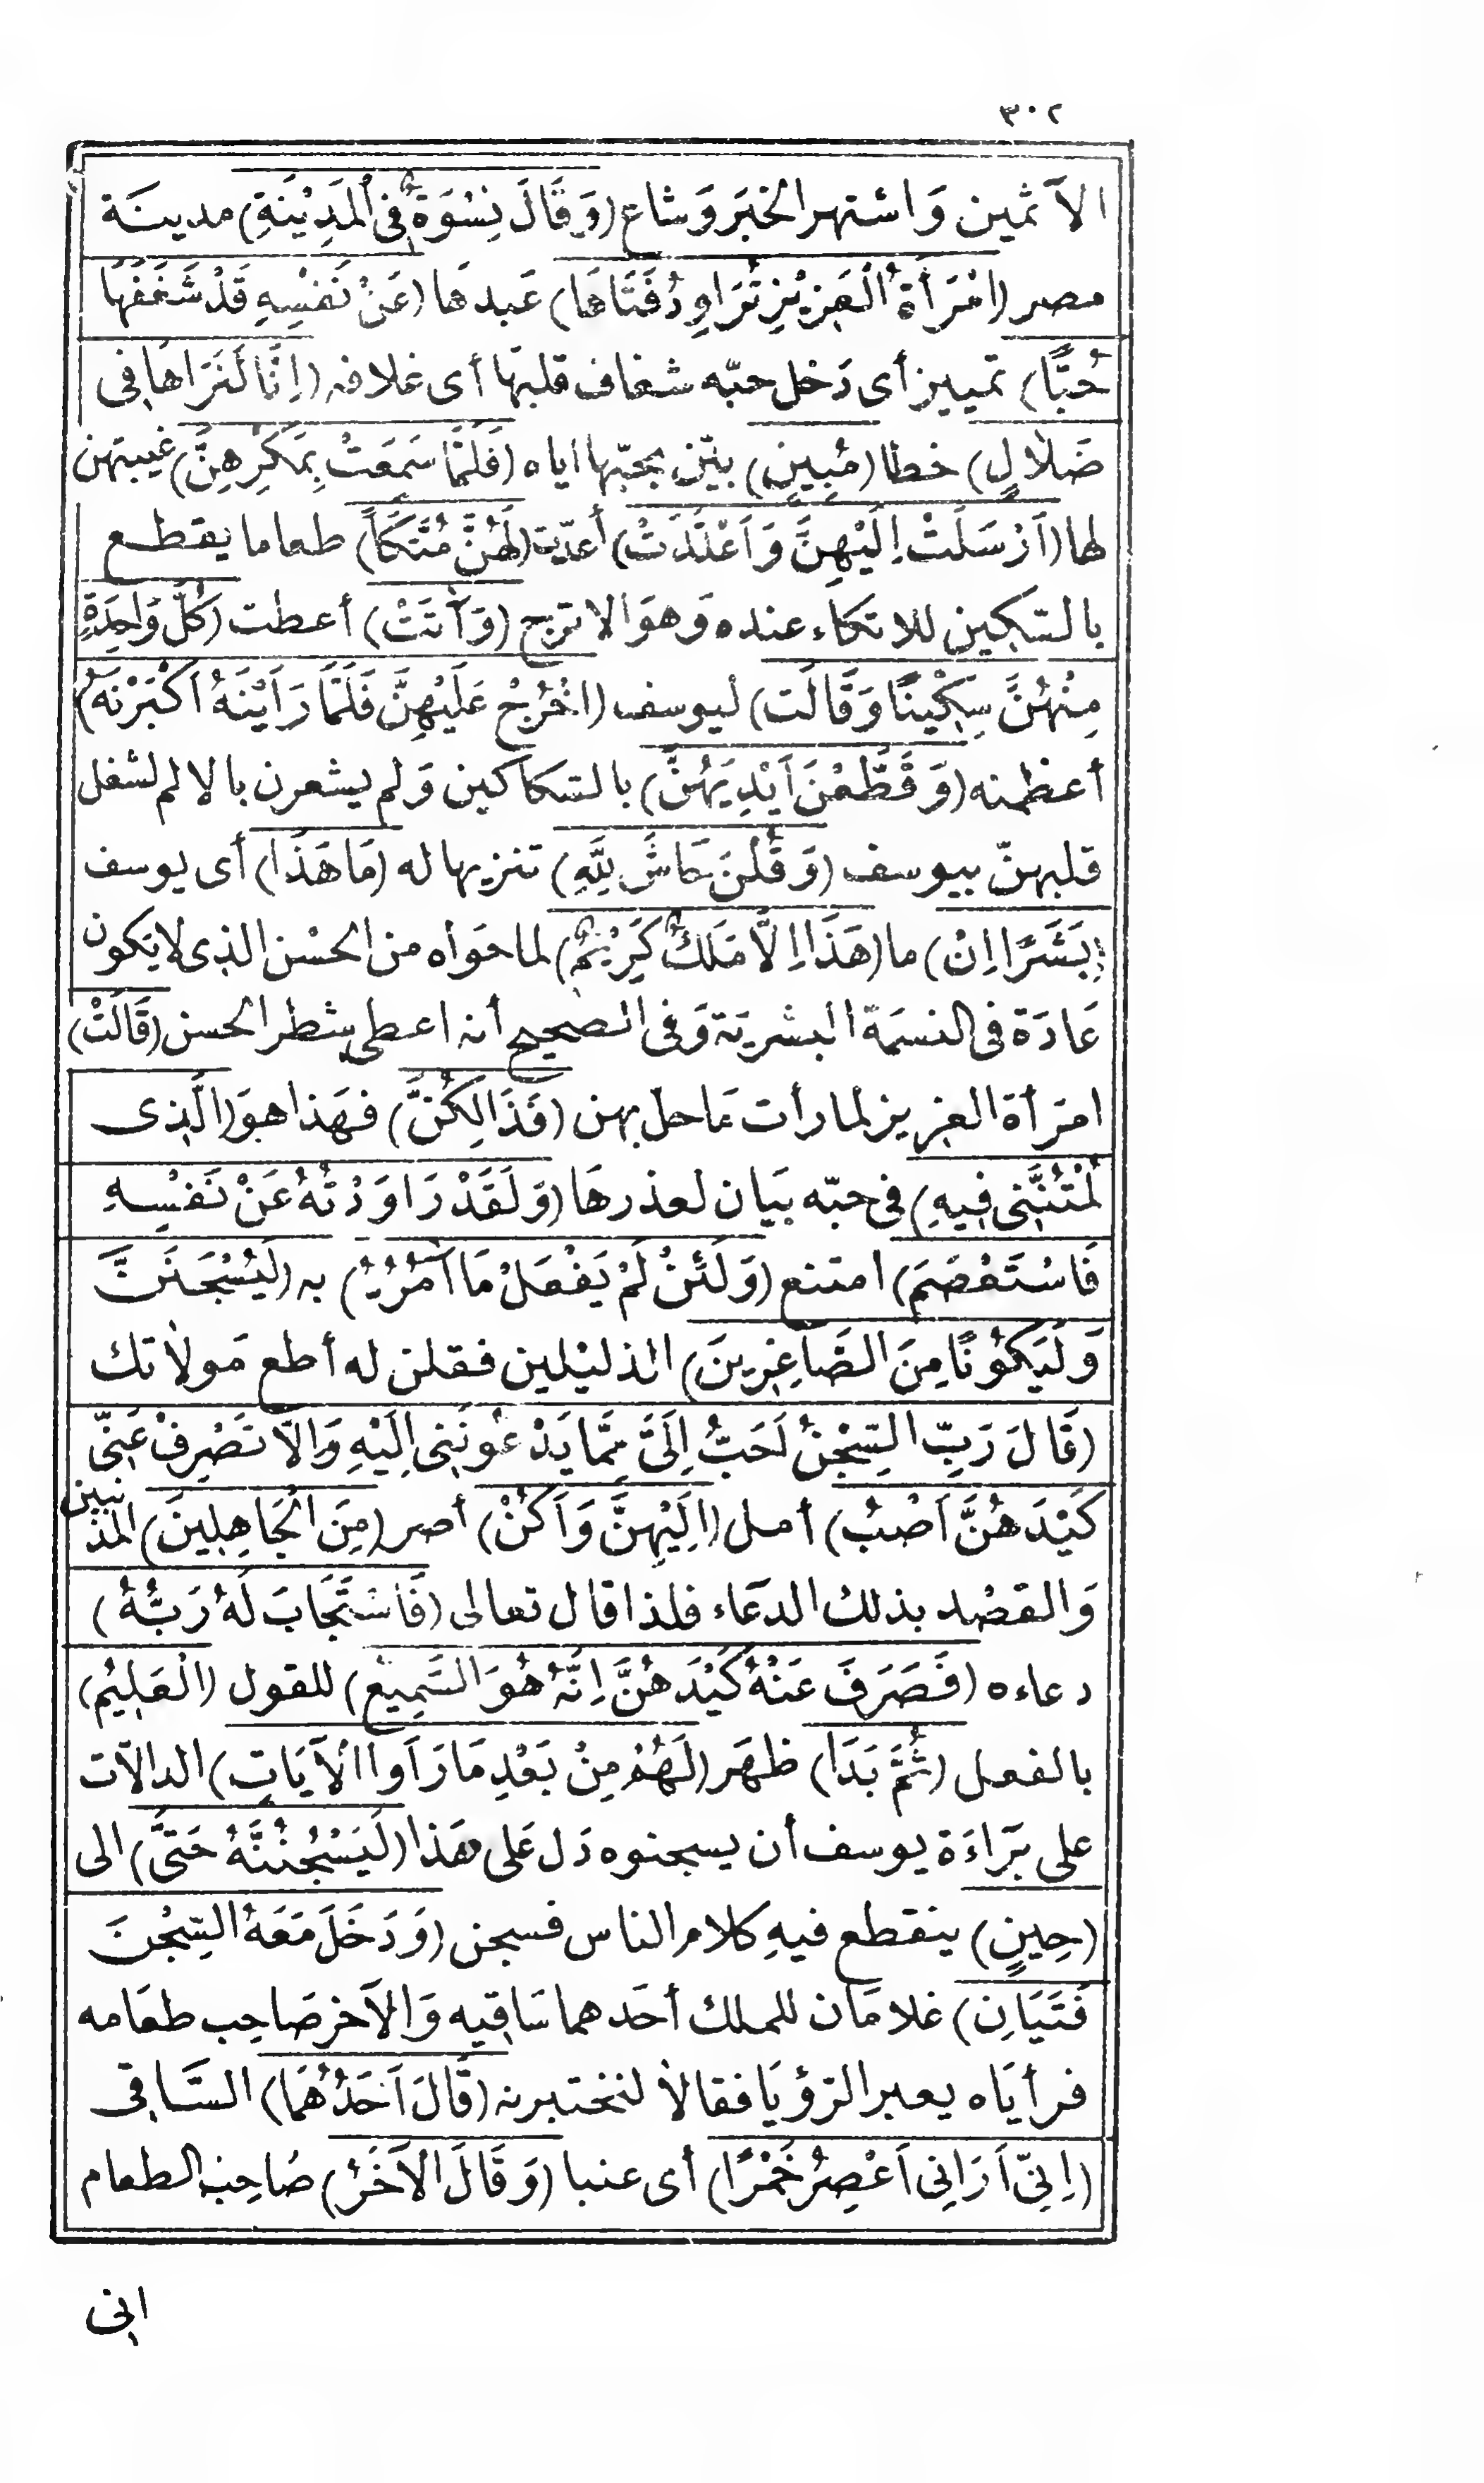 ٣٠٢
الآثمين وَاشتهر الخبَر وَشاع (وَقَالَ نِسْوَةٌ فِى الْمَدِيْنَةِ) مدينَة
مصر (امْرَأَةُ الْعَزِيْزِ تُرَاوِدُ فَتَاهَا) عَبدهَا (عَنْ نَفْسِهِ قَدْ شَغَفَهَا
حُبًّا) تمييز أى دَخل حبّه شغاف قلبهَا أى غلافه (اِنَّا لَنَرَاهَا فِى
ضَلَالٍ) خطا (مُبِينٍ) بيّن بحبّها اياه (فَلَمَّا سَمَعَتْ بِمَكْرِهِنَّ) غيبتهن
لها (اَرْسَلَتْ اِلَيْهِنَّ وَاَعْتَدَتْ) أعدّت (لَهُنَّ مُتَّكَأً) طعاما يقطع
بالسّكين للاتكاء عنده وَهوَ الاترج (وَآتَتْ) أعطت (كُلَّ وَاحِدَةٍ
مِنْهُنَّ سِكْيِنًا وَقَالَت) ليوسف (اخْرُجْ عَلَيْهِنَّ فَلَمَّا رَاَيْنَهُ اَكْبَرْنَهُ)
أعظمنه (وَقَطَّعْنَ اَيْدِيَهُنَّ) بالسّكاكين وَلم يشعرن بالالم لشغل
قلبهنّ بيوسف (وَقُلْنَ حَاشَ لِلَّهِ) تنزيها له (مَا هَذَا) أى يوسف
(بَشَرًا اِنْ) ما (هَذَا اِلَّا مَلَكٌ كَرِيْمٌ) لما حوَاه من الحسْن الذى لا يَكون
عَادَة فى النسمَة البشريَة وَفى الصَحيح أنه اعطى شطر الحسن (قَالَتْ)
امرَأة العزيز لما رأت مَا حلّ بهن (فَذَالِكُنَّ) فهَذا هوَ (الَّذِى
لُمْتُنَّنِى فِيهِ) فى حبّه بيَان لعذرهَا (وَلَقَدْ رَاوَدْتُهُ عَنْ نَفْسِهِ
فَاسْتَعْصَمَ) امتنع (وَلَئِنْ لَمْ يَفْعَلْ مَا آمُرُهُ) به (لَيُسْجَنَنَّ
وَلَيَكُوْنًا مِنَ الصَّاغِرِينَ) الذليلين فقلن له أطع مَولاتك
(قَالَ رَبِّ السِّجْنُ اَحَبُّ اِلَىَّ مِمَّا يَدْعُونَنِى اِلَيْهِ وَاِلَّا تَصْرِفْ عَنِّى
كَيْدَهُنَّ اَصْبُ) أمل (اِلَيْهِنَّ وَاَكُنْ) أصر (مِنَ الْجَاهِلِينَ) المذنبين
وَالقصْد بذلك الدعَاء فلذا قال تعالى (فَاسْتَجَابَ لَهُ رَبُّهُ)
دعاءه (فَصَرَفَ عَنْهُ كَيْدَهُنَّ اِنَّهُ هُوَ السَّمِيعُ) للقول (الْعَلِيْمُ)
بالفعل (ثُمَّ بَدَا) ظهَر (لَهُمْ مِنْ بَعْدِ مَا رَاَوا الْآيَاتِ) الدالآت
على بَرَاءَة يوسف أن يسجنوه دَل عَلى هَذا (لَيَسْجُنُنَّهُ حَتَّى) الى
(حِينٍ) ينقطع فيهِ كلام الناس فسجن (وَدَخَلَ مَعَهُ السِّجْنَ
فَتَيَانِ) غلامَان للملك أحَدهما سَاقيه وَالآخر صَاحِب طعَامه
فرأيَاه يعبر الرّؤيَا فقالا لنختبرنه (قَالَ اَحَدُهُمَا) السَّاقى
(اِنِّى اَرَانِى اَعْصِرُ خَمْرًا) أى عنبا (وَقَالَ الْآخَرُ) صَاحِب الطعام
انى